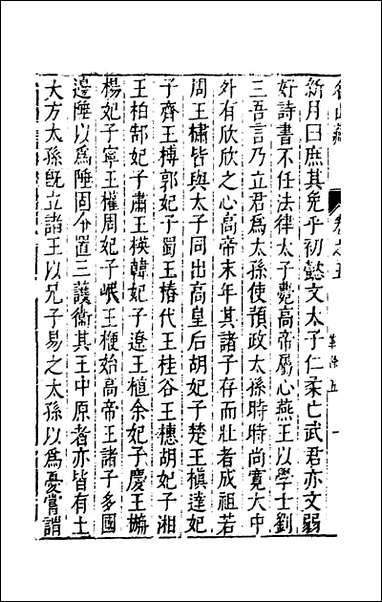 名山藏 卷之五 革除五 一
新月曰庶其免乎初懿文太子仁柔亡武君亦文弱
好詩書不任法律太子薨高帝屬心燕王以學士劉
三吾言乃立君為太孫使預政太孫時時尚寬大中
外有欣欣之心高帝末年其諸子存而壯者成祖若
周王橚皆與太子同出高皇后胡妃子楚王楨達妃
子齊王榑郭妃子蜀王椿代王桂谷王橞胡妃子湘
王柏郜妃子肅王楧韓妃子遼王植余妃子慶王㮵
楊妃子寧王權周妃子岷王楩始高帝王諸子多國
邊陲以為陲固分置三護衛其王中原者亦皆有土
大方太孫旣立諸王以兄子易之太孫以為憂嘗謂